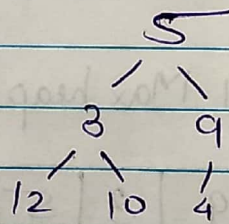 5
3 9
12 10 4